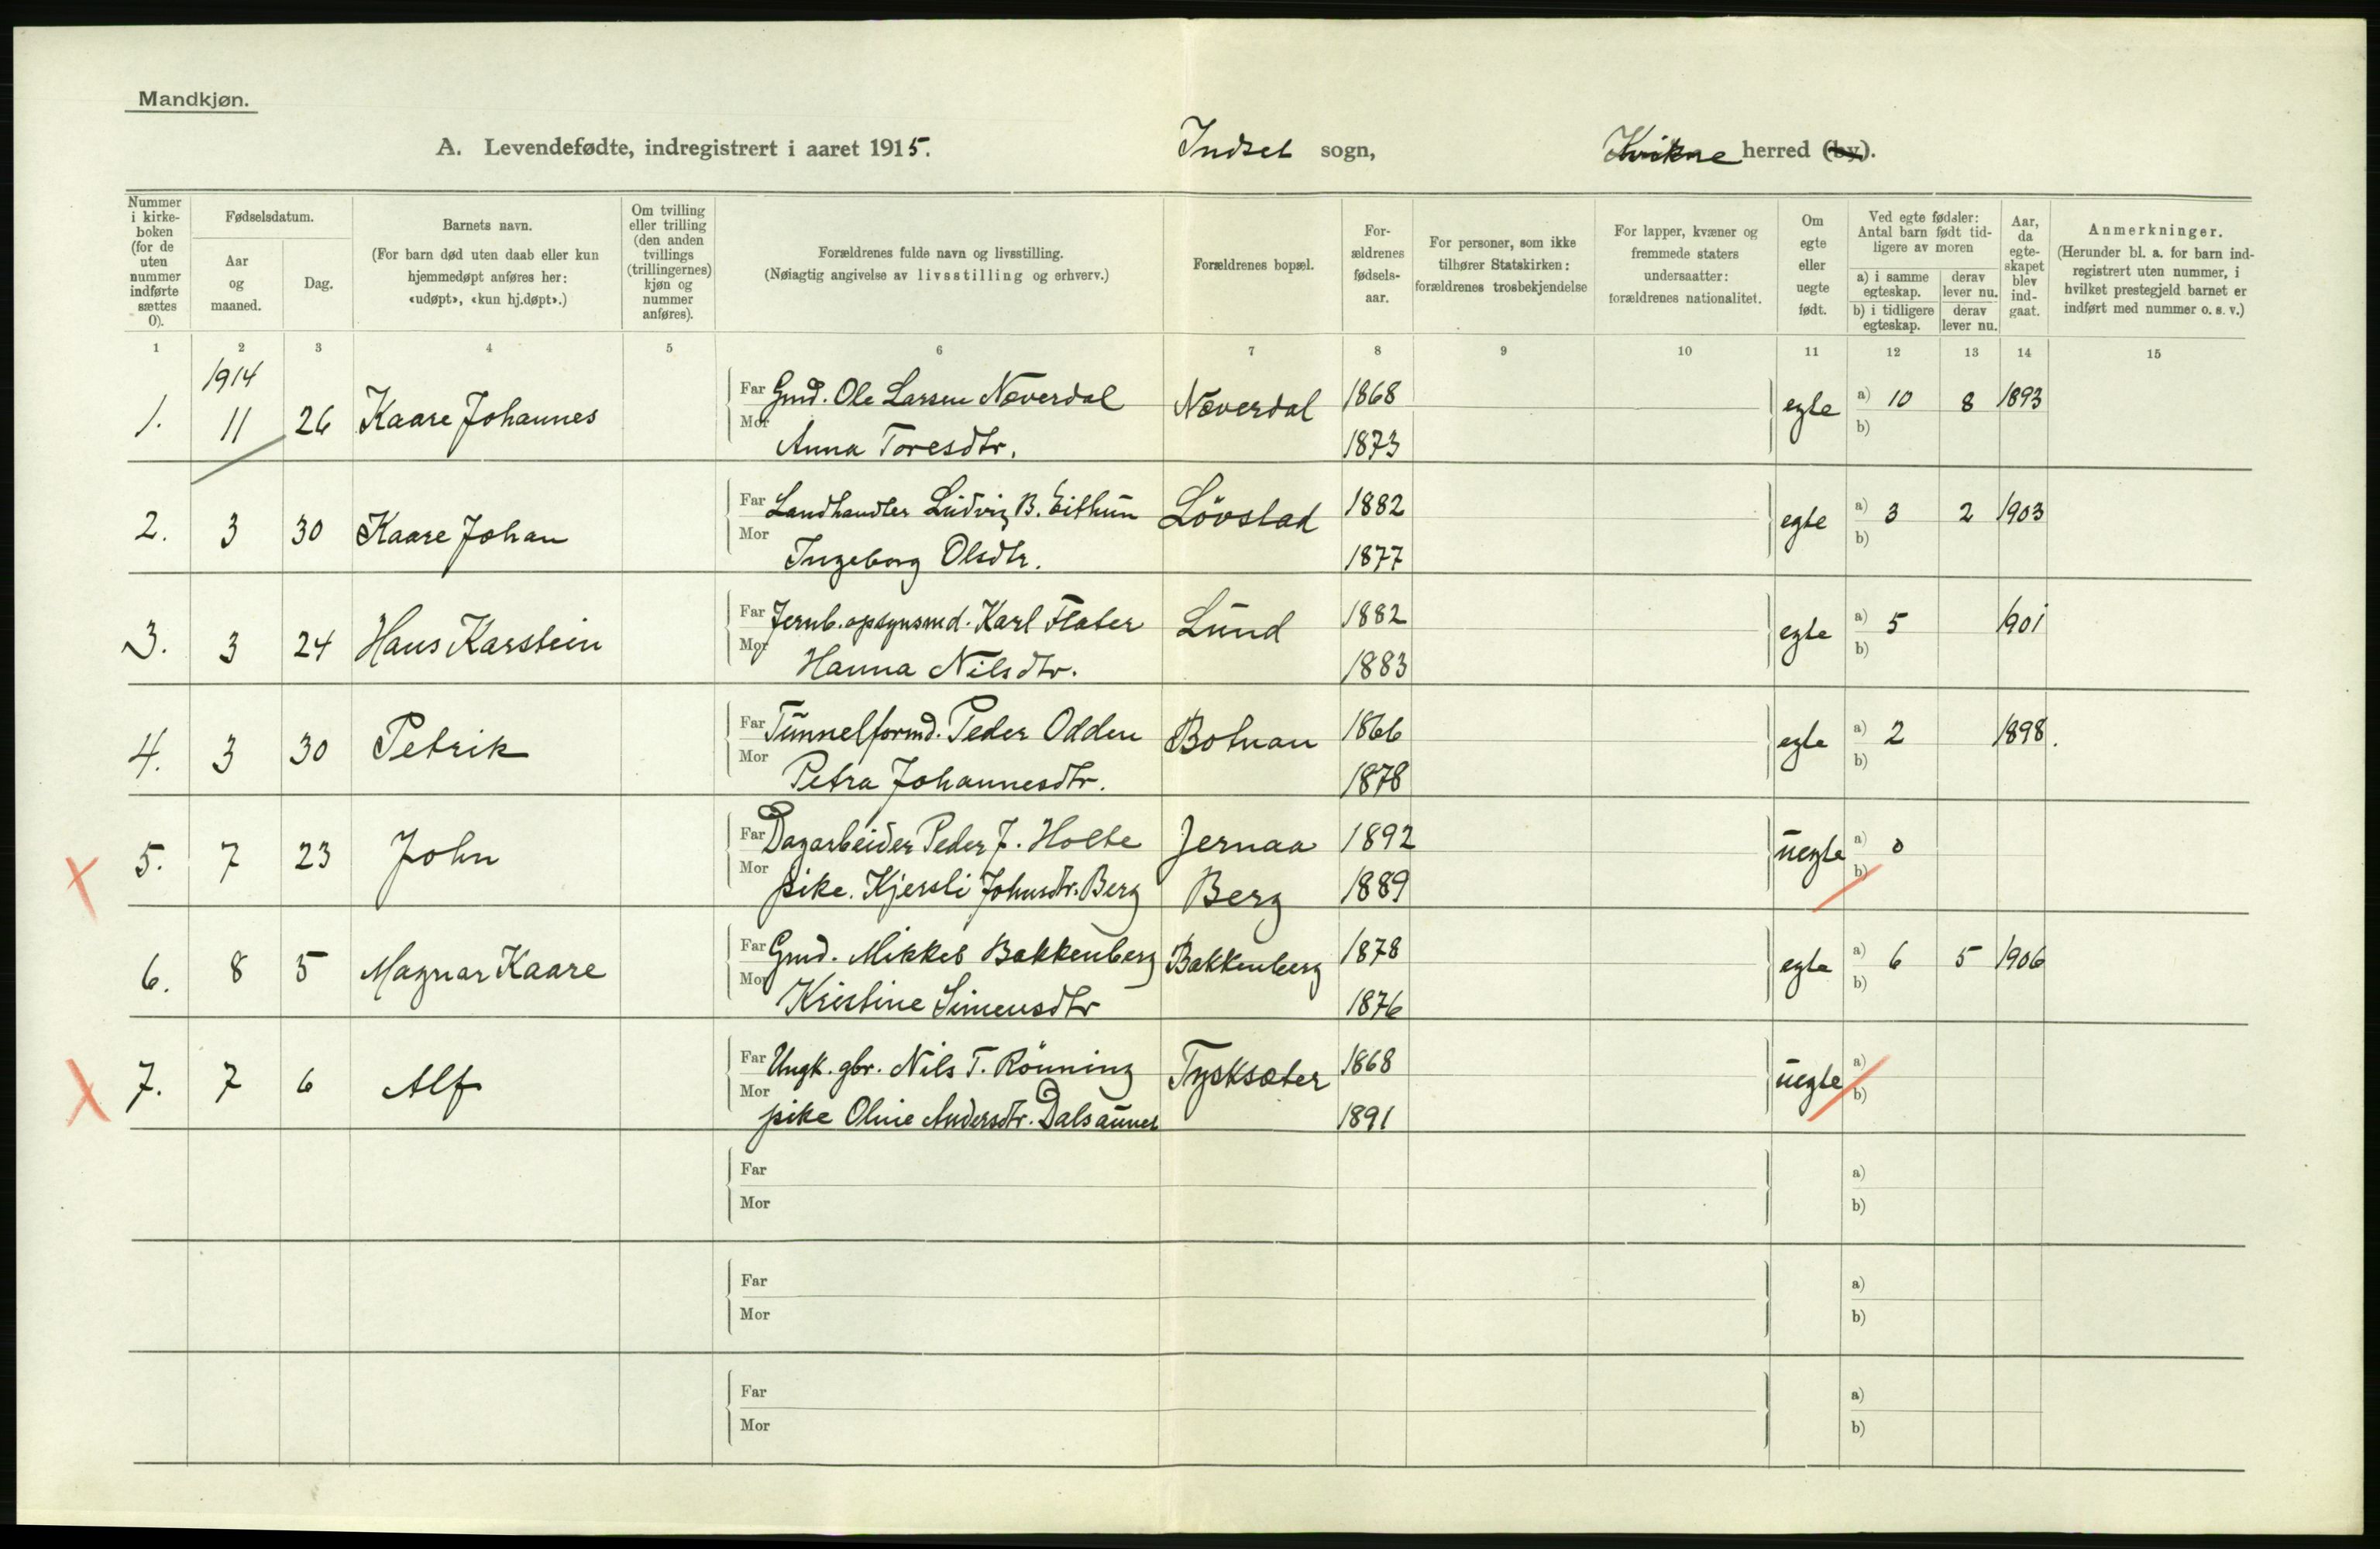 Mandkjøn.
A. Levendefødte, indregistrert i aaret 1915. Indset sogn, Kvikne herred (by).
Nummer i kirke- boken (for de uten nummer indførte sættes 0).
Fødselsdatum.
Aar og maaned.
Dag.
Barnets navn.
(For barn død uten daab eller kun hjemmedøpt anføres her: «udøpt», «kun hj.døpt».)
Om tvilling eller trilling (den anden tvillings (trillingernes) kjøn og nummer anføres).
Forældrenes fulde navn og livsstilling.
(Nøiagtig angivelse av livsstilling og erhverv.)
Forældrenes bopæl.
For- ældrenes fødsels- aar.
For personer, som ikke tilhører Statskirken: forældrenes trosbekjendelse
For lapper, kvæner og fremmede staters undersaatter: forældrenes nationalitet.
Om egte eller uegte født.
Ved egte fødsler: Antal barn født tid- ligere av moren
a) i samme egteskap.
derav lever nu.
b) i tidligere egteskap.
derav lever nu.
Aar, da egte- skapet blev ind- gaat.
Anmerkninger.
(Herunder bl. a. for barn ind- registrert uten nummer, i hvilket prestegjeld barnet er indført med nummer o. s. v.)
1 2 3 4 5 6 7 8 9 10 11 12 13 14 15
1914
1. 11 26 Kaare Johannes Far Gmd. Ole Larsen Næverdal Næverdal 1868 egte a) 10 8 1893
Mor Anna Toresdtr. 1873 b)
2. 3 30 Kaare Johan Far Landhandler Ludvig B. Eithun Lövstad 1882 egte a) 3 2 1903
Mor Ingeborg Olsdtr. 1877 b)
3. 3 24 Hans Karstein Far Jernb. opsynsmd. Karl Flater Lund 1882 egte a) 5 1901
Mor Hanna Nilsdtr. 1883 b)
4. 3 30 Petrik Far Tunnelformd. Peder Odden Botnan 1866 egte a) 2 1898.
Mor Petra Johannesdtr. 1878 b)
5. 7 23 John Far Dagarbeider Peder J. Holte Jernaa 1892 uegte a) 0
Mor pike. Kjersti Johnsdtr. Berg Berg 1889 b)
6. 8 5 Magnar Kaare Far Gmd. Mikkel Bakkenberg Bakkenberg 1878 egte a) 6 5 1906
Mor Kristine Simensdtr 1876 b)
7. 7 6 Alf Far Ungk. gbr. Nils T. Rönning Tysksæter 1868 uegte a)
Mor pike Oline Andersdtr. Dalsaunet 1891 b)
Far a)
Mor b)
Far a)
Mor b)
Far a)
Mor b)